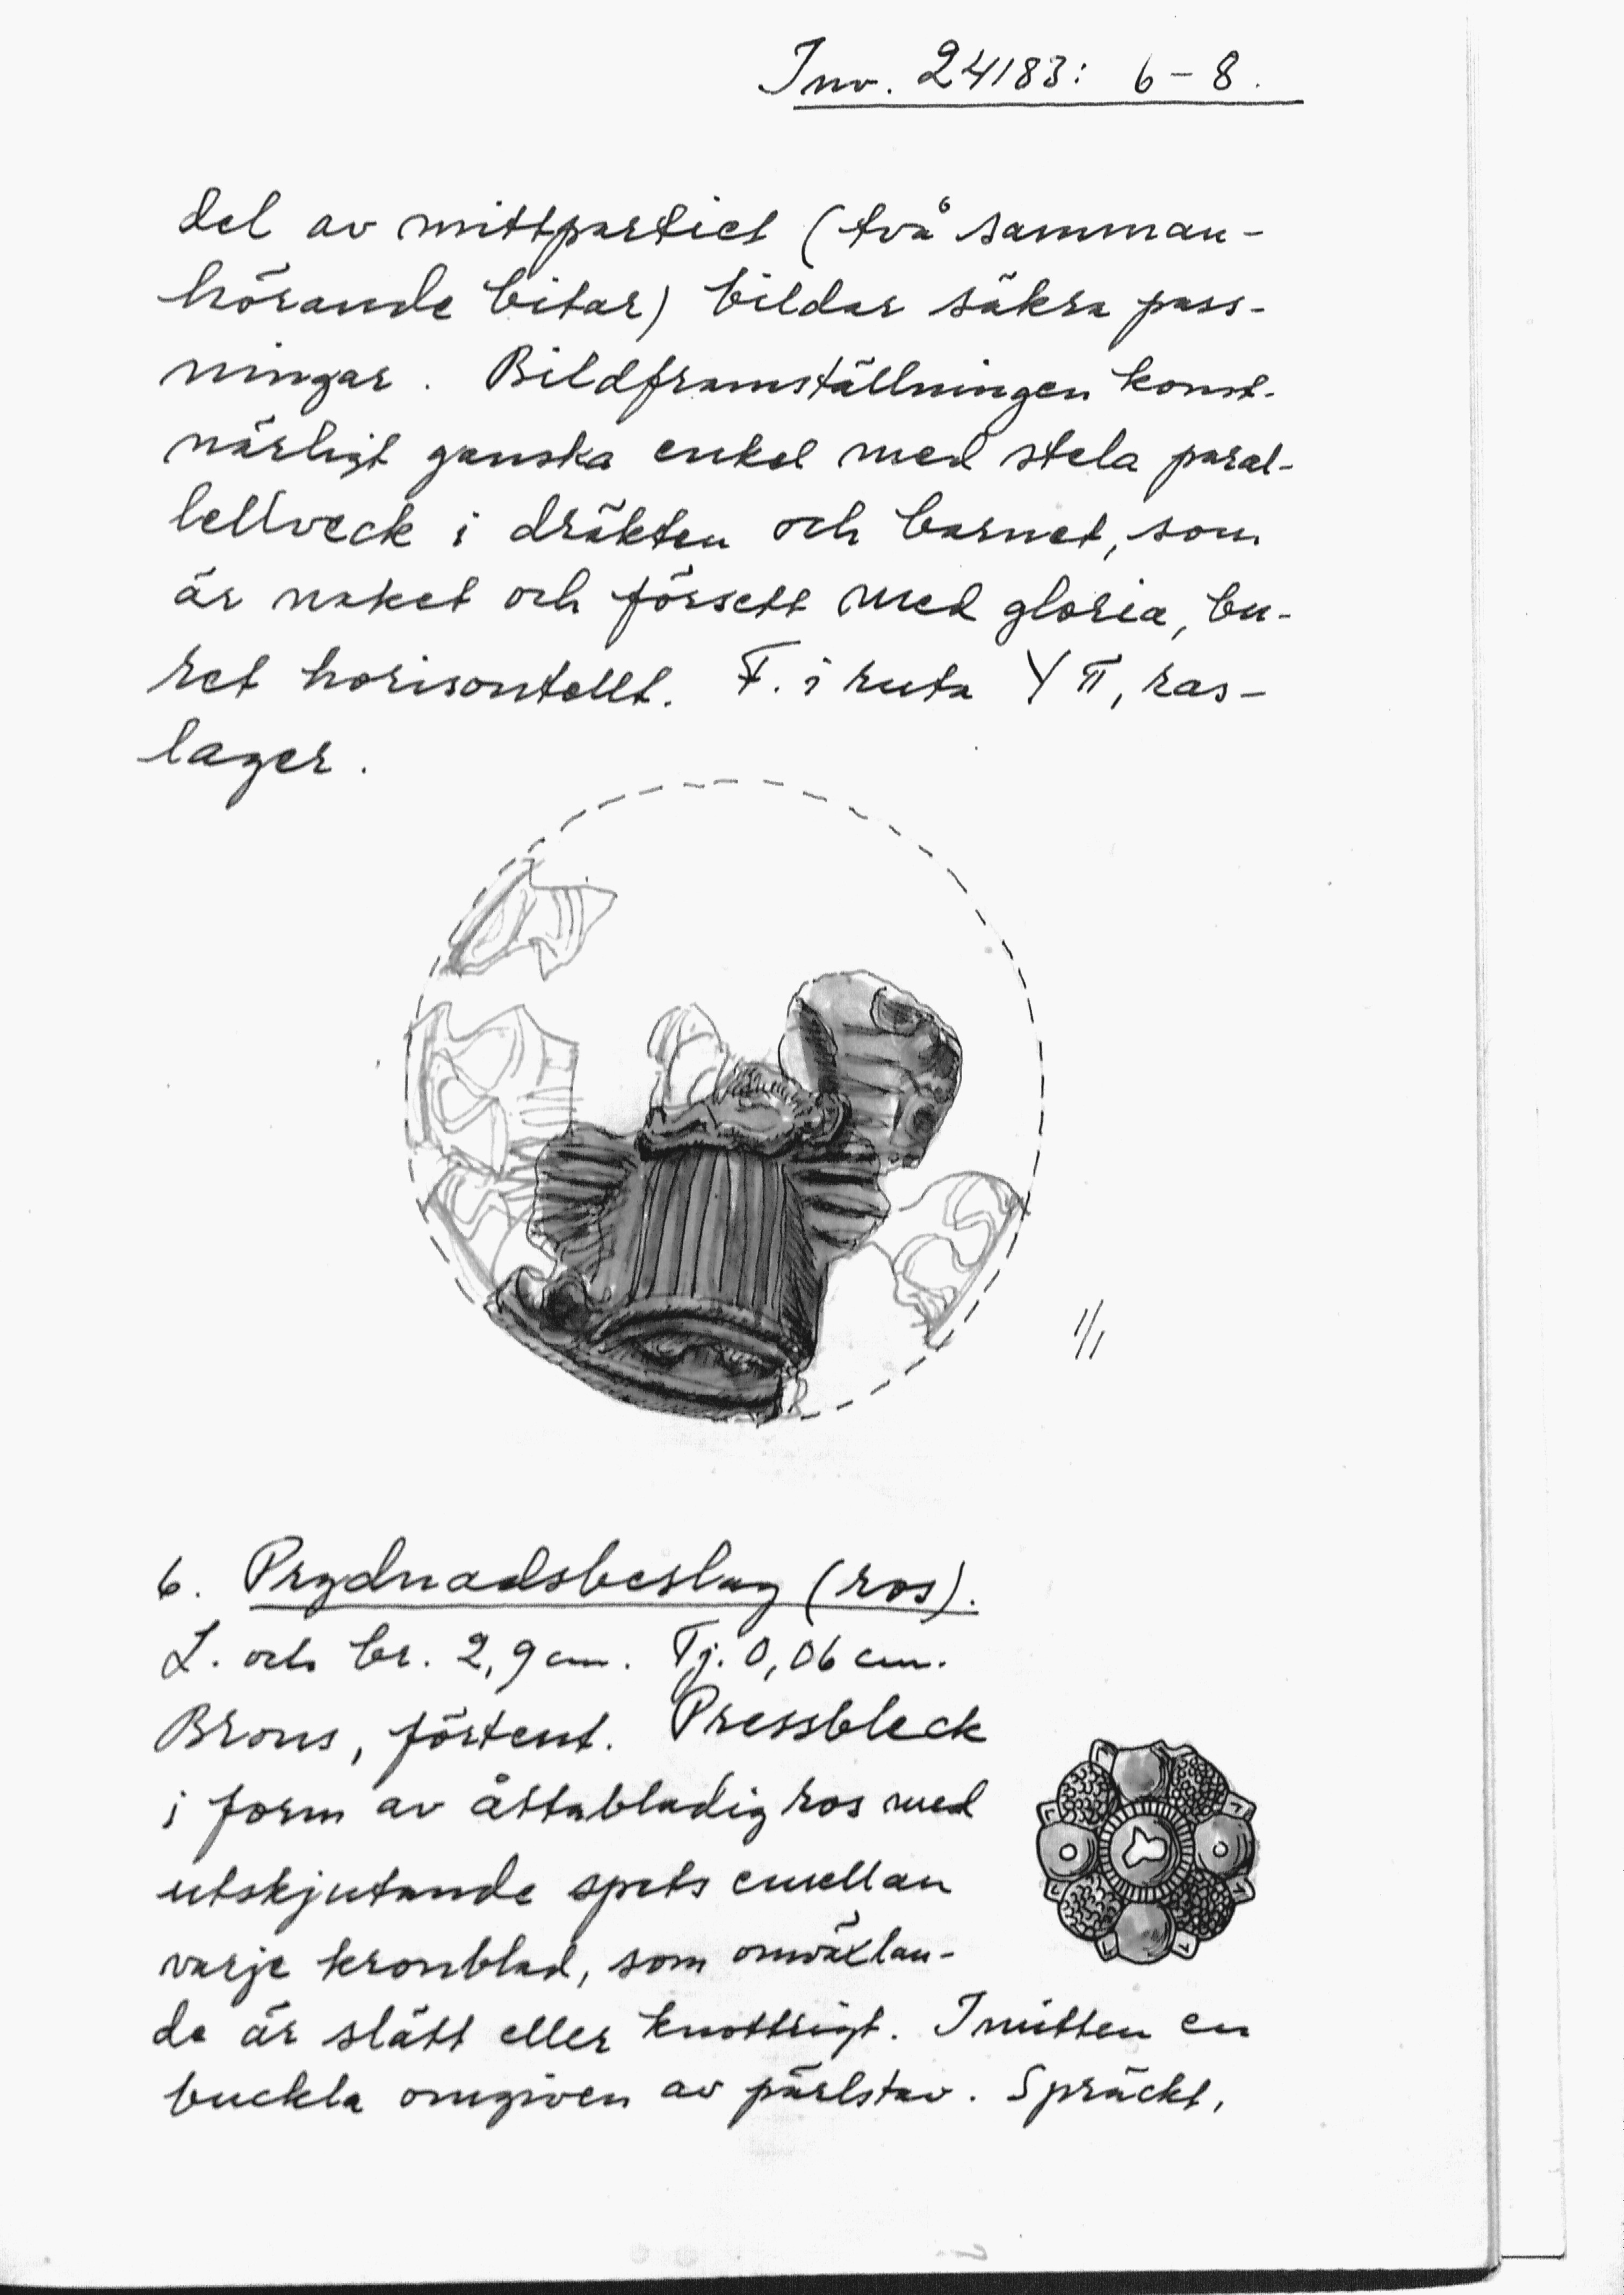 Inv. 24183: 6-8.
del av mittpartiet (två samman-
hörande bitar) bildar säkra pass-
ningar. Bildframställningen konst-
närligt ganska enkel med stela paral-
lellveck i dräkten och barnet, som
är naket och försett med gloria, bu-
ret horisontellt. F. i ruta Y II, ras-
lager.
1/1
6. Prydnadsbeslag (ros).
L. och br. 2,9 cm. Tj. 0,06 cm.
Brons, förtent. Pressbleck
i form av åttabladig ros med
utskjutande spets emellan
varje kronblad, som omväxlan-
de är slätt eller knottrigt. I mitten en
buckla omgiven av pärlstav. Spräckt,